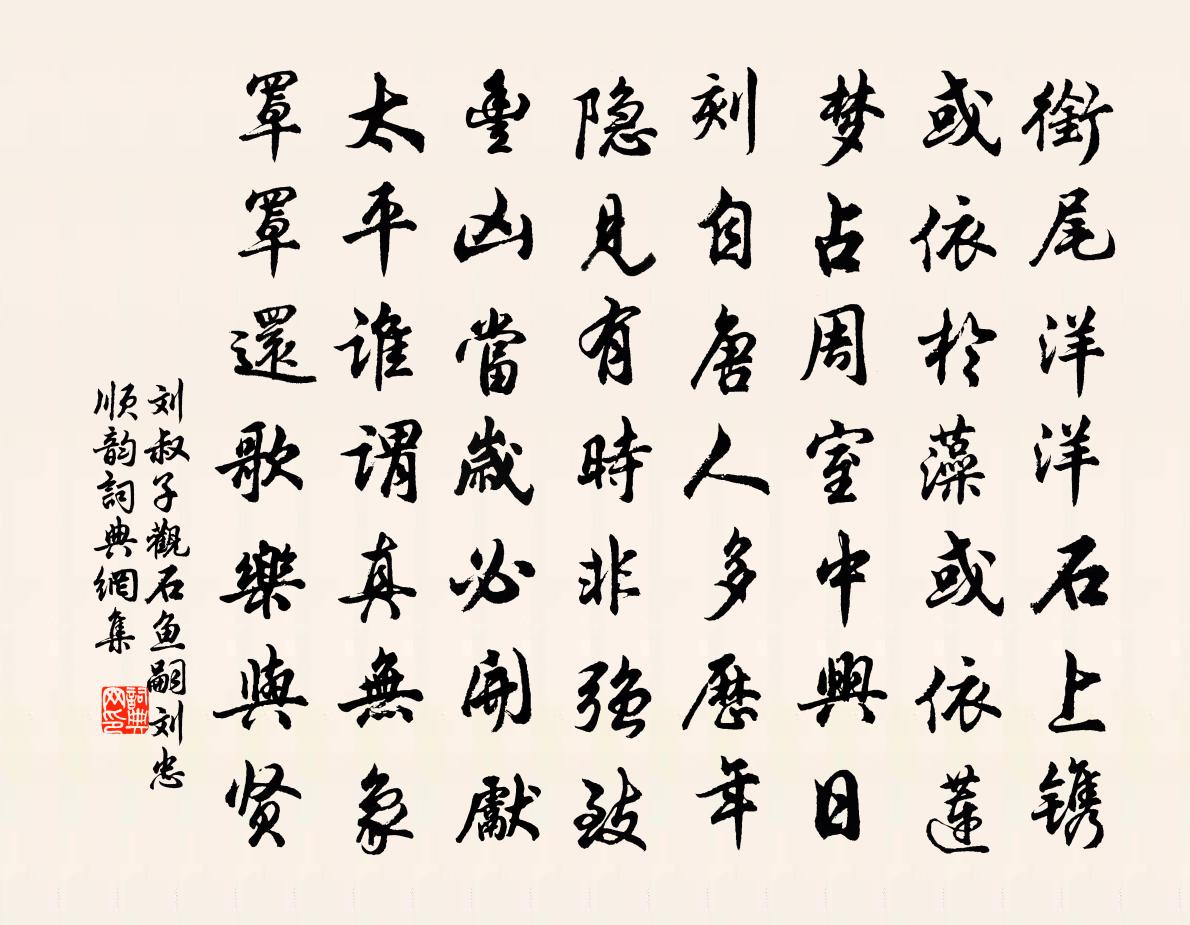 衔尾洋洋石上镌
或依於藻或依莲
梦占周室中興日
刻自唐人多歷年
隐見有時非强致
豊凶當歲必開獻
太平谁謂真無象
罩罩還歌樂與贤
刘叔子觀石鱼嗣刘忠
順韵詞典網集
詞典网印